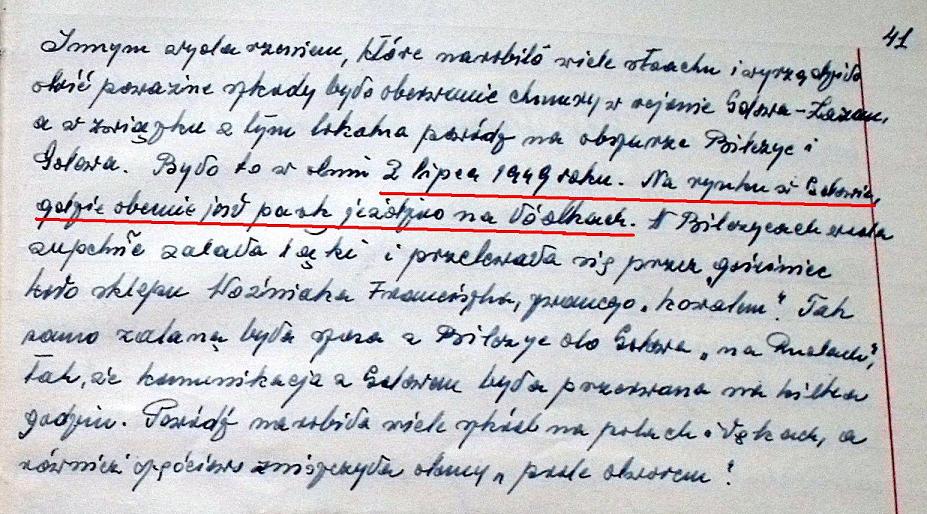 41
Innym wydarzeniem, które narobiło wiele strachu i wyrządziło
dość poważne szkody było oberwanie chmury w rejonie Gdowa-Łazan,
a w związku z tym lokalna powódź na obszarze Bilczyc i
Gdowa. Było to w dniu 2 lipca 1949 roku. Na rynku w Gdowie,
gdzie obecnie jest park jeżdżono na łódkach. W Bilczycach woda
zupełnie zalała łąki i przelewała się przez gościniec
koło sklepu Woźniaka Franciszka, zwanego „kowalem". Tak
samo zalana była szosa z Bilczyc do Gdowa „na
tak, że komunikacja z Gdowem była przerwana na kilka
godzin. Powódź narobiła wiele szkód na polach i łąkach, a
również częściowo zniszczyła domy „pode dworem"